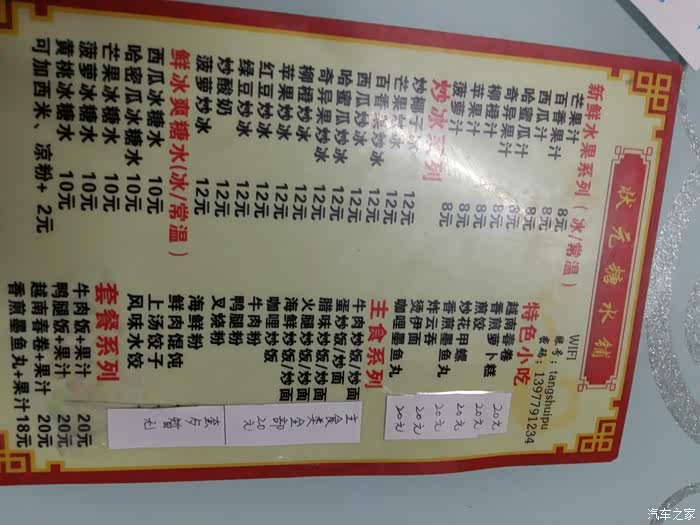 状元糖水铺
WIFI
账号：tangshuipu
密码：1397791234
新鲜水果系列（冰/常温）
芒果汁 8元
百香果汁 8元
西瓜汁 8元
哈蜜瓜汁 8元
奇异果汁 8元
柳橙汁 8元
苹果汁 8元
菠萝汁 8元
炒冰系列
炒椰子冰 12元
芒果炒冰 12元
百香果炒冰 12元
西瓜炒冰 12元
哈蜜瓜炒冰 12元
奇异果炒冰 12元
柳橙炒冰 12元
苹果炒冰 12元
红豆炒冰 12元
绿豆炒冰 12元
炒酸奶 12元
菠萝炒冰 12元
鲜冰爽糖水(冰/常温)
西瓜冰糖水 10元
哈密瓜冰糖水 10元
芒果冰糖水 10元
菠萝冰糖水 10元
黄桃冰糖水 10元
可加西米、凉粉+ 2元
特色小吃
越南春卷
香煎萝卜糕
煎饺
炒花甲螺
香煎墨鱼丸
炸云吞
烫伊面
咖喱墨鱼丸
20元
20元
20元
20元
20元
主食系列
牛肉炒饭/炒面
蛋炒饭/炒面
腊味炒饭/炒面
火腿炒饭/炒面
海鲜炒饭/炒面
咖喱炒饭
牛肉粉
鸭腿粉
叉烧粉
海鲜粉
鲜肉馄饨
上汤饺子
风味水饺
主食类全部
20元
套餐系列
牛肉饭+果汁 20元
鸭腿饭+果汁 20元
越南春卷+果汁 20元
香煎墨鱼丸+果汁 18元
汽车之家